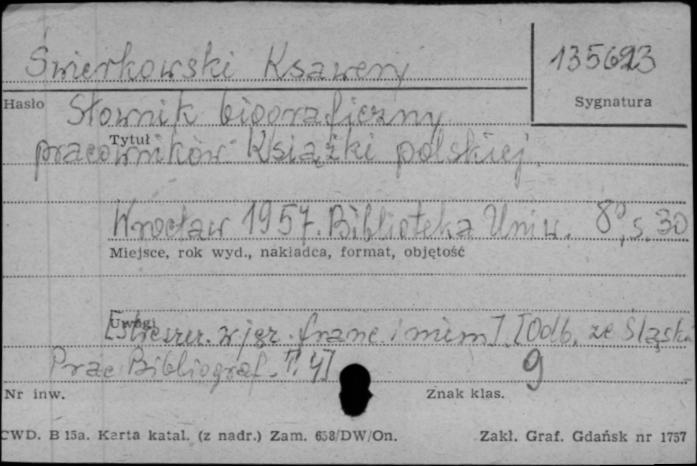 Świerkowski Ksawery
135623
Hasło
Sygnatura
Słownik biograficzny
Tytuł
pracowników Książki polskiej.
Wrocław 1957. Biblioteka Uniw. 8°, s. 30
Miejsce, rok wyd., nakładca, format, objętość
Uwagi
[Streszcz. w jęz. franc. i niem]. [Odb. ze Śląsk.
Prac Bibliograf. T. 4]
9
Nr inw.
Znak klas.
CWD. B 15a. Karta katal. (z nadr.) Zam. 658/DW/On.
Zakl. Graf. Gdańsk nr 1757